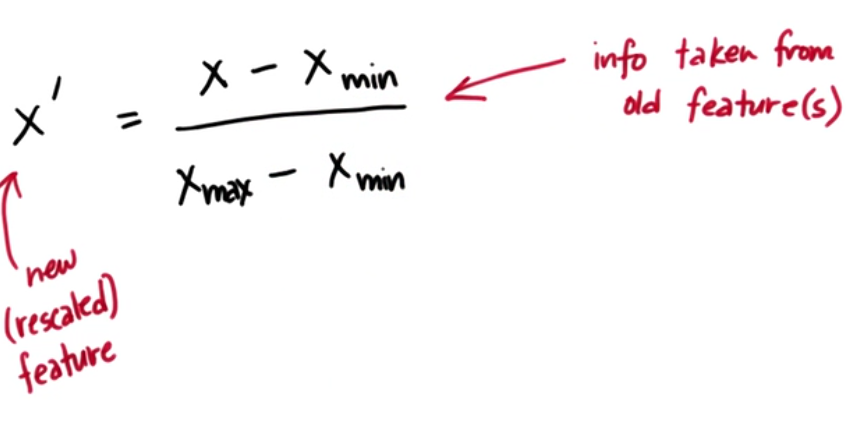 x' = x - xmin
xmax - xmin
info taken from
old feature(s)
new
(rescaled)
feature